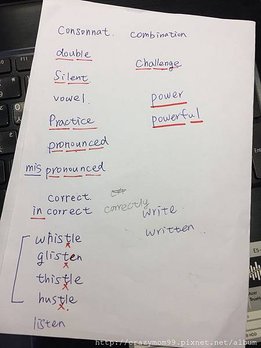 Consonnat. combination
double
Challenge
Silent
vowel.
power
Practice
powerful
pronounced
mispronounced
correct.
incorrect correctly
write
whistle
written
glisten
thistle
hustle.
listen
http://crazymom99.pixnet.net/album